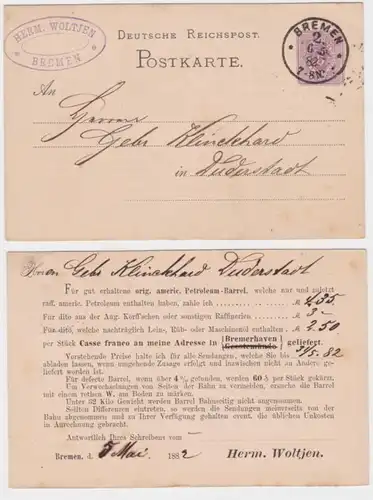 HERM. WOLTJEN
BREMEN
DEUTSCHE REICHSPOST.
POSTKARTE.
BREMEN
2
6 5
82
7-8N.
An
Herren
Gebr Klinckhard
in Duderstadt
Herren Gebr Klinckhard Duderstadt
Für gut erhaltene orig. americ. Petroleum-Barrel, welche nur und zuletzt
raff. americ. Petroleum enthalten haben, zahle ich M.
Für dito aus der Aug. Korff'schen oder sonstigen Raffinerien M. 3.-
Für dito, welche nachträglich Lein-, Rüb- oder Maschinenöl enthalten M. 2.50
per Stück Casse franco an meine Adresse in {Bremerhaven Geestemünde} geliefert.
Vorstehende Preise halte ich für alle Sendungen, welche Sie bis 5. 82
ablassen, wenn umgehende Zusage erfolgt und inzwischen nicht an Andere ge-
liefert worden ist.
Für defecte Barrel, wenn über 4%, gefunden, werden 60 per Stück gekürzt.
Um Verwechselungen von Seiten der Bahn zu vermeiden, ersuche die Barrel
mit einem rothen W. aus Boden zu märken.
Unter 32 Kilo Gewicht werden Barrel Bahnseitig nicht angenommen.
Sollten Differenzen eintreten, so werden die Sendungen meinerseits von der
Bahn abgenommen und zu Ihrer Verfügung gehalten event. die üblichen Unkosten
in Anrechnung gebracht.
Antwortlich Ihres Schreibens vom —
Bremen, d. 5 Mai 1882 Herm. Woltjen.